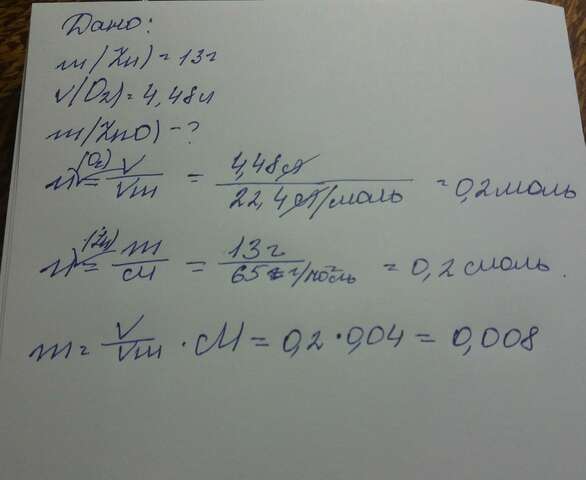 Дано:
m(Zn) = 13г
V(O2) = 4,48л
m(ZnO) - ?
n(O2) = V/Vm = 4,48л/22,4л/моль = 0,2моль
n(Zn) = m/M = 13г/65г/моль = 0,2моль.
m = V/Vm · M = 0,2 · 0,04 = 0,008